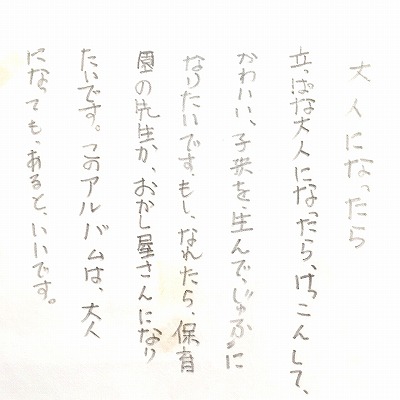 大人になったら
立っぱな大人になったら、けっこんして、
かわいい、子供を、生んで、じょうぶに
なりたいです。もし、なれたら、保育
園の先生か、おかし屋さんになり
たいです。このアルバムは、大人
になっても、あると、いいです。